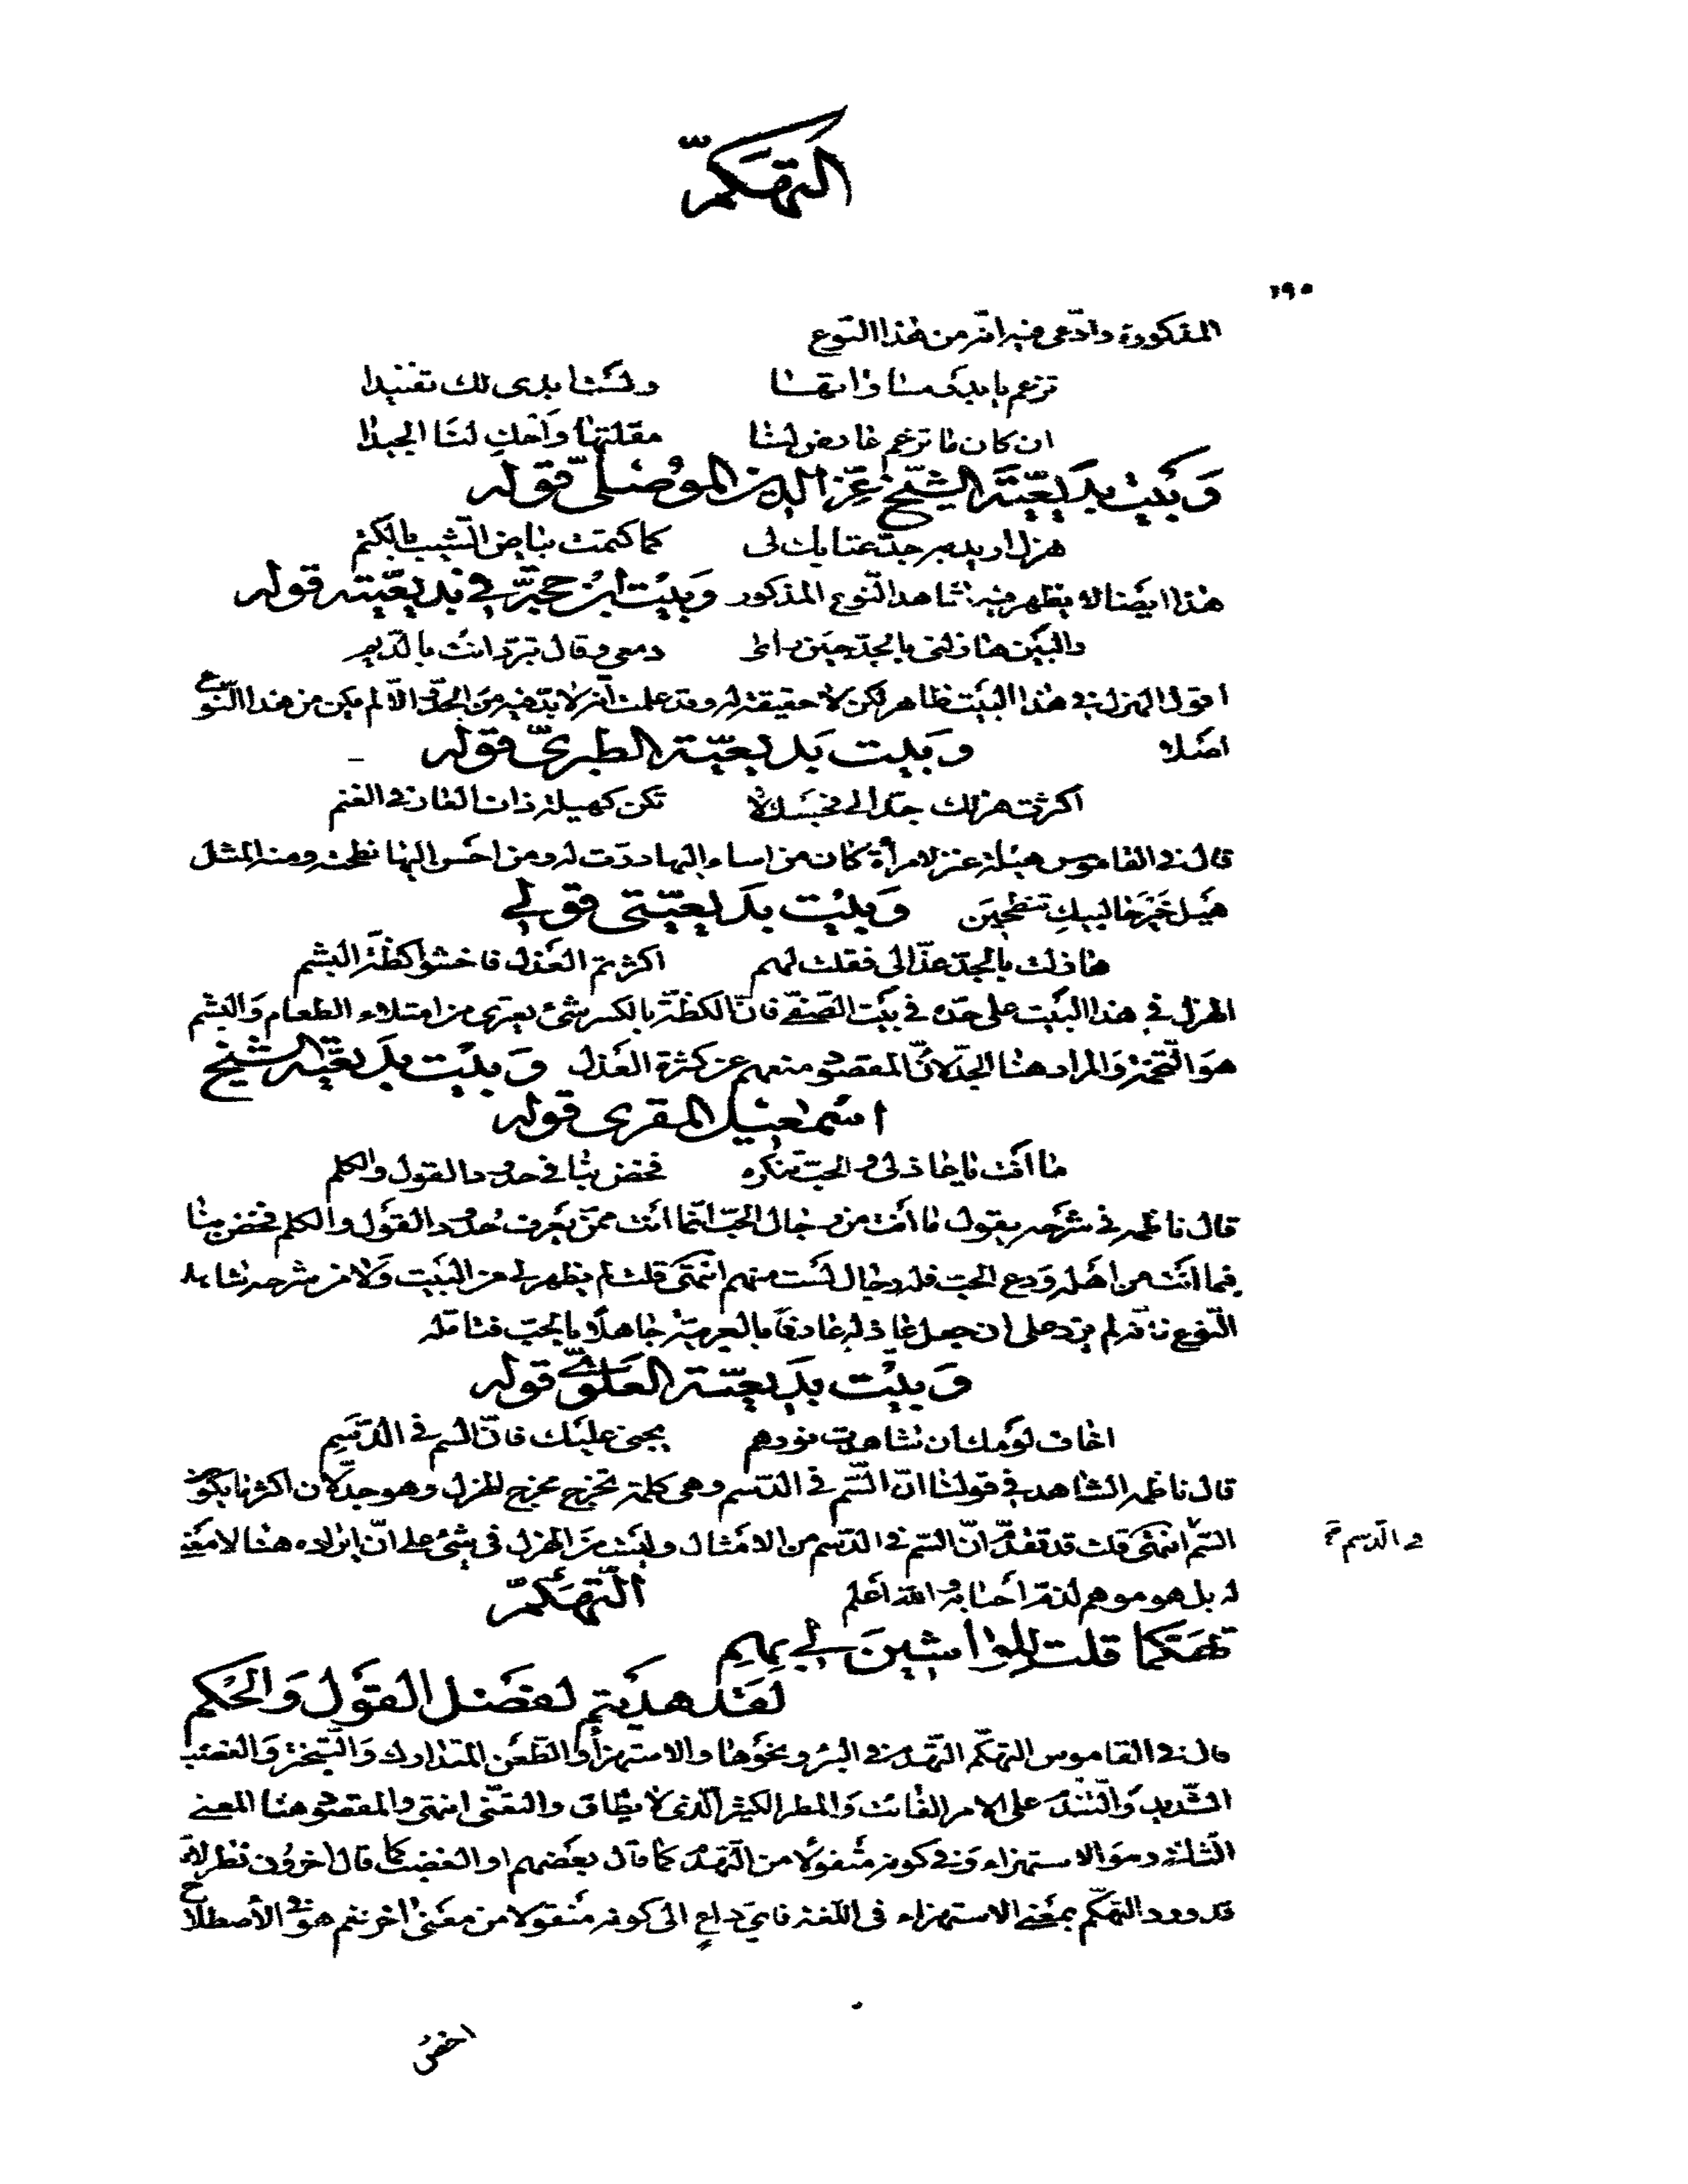 التهكم
١٩٠
المذكورة وادعى فيه انه من هذا النوع
تزعم يا بدر منا وابتهنا ولست بدرى لك تفنيدا
ان كان ما تزعم عارض لنا مقلتها واحك لنا الجيدا
وبيت بديعية الشيخ عز الدين الموصلى قوله
هزل اريد به جد عتابك لى كما كتمت بياض الشيب بالكتم
هذا ايضا لا يظهر فيه شاهد النوع المذكور وبيت ابن حجة في بديعيته قوله
والبين هازلنى بالجد حين راى دمعى وقال تبرد انت بالديم
اقول الهزل في هذا البيت ظاهر لكن لا حقيقة له وقد علمت انه لا بد فيه من الجد والا لم يكن من هذا النوع
اصلا وبيت بديعية الطبرى قوله
اكثرت هزلك جدا لى فحسبك لا تكن كهيلة ذات الغارة في الغنم
قال في القاموس هيلة عنز لامرأة كان من اساء اليها درت له ومن احسن اليها نطحته ومنه المثل
هيل خير حالبيك تنطحين وبيت بديعيتى قولي
هازلت بالجد عذالى فقلت لهم اكثرتم العذل فاخشوا كظة البشم
الهزل في هذا البيت على حده في بيت الصفى فان الكظة بالكسر شئ يعترى من امتلاء الطعام والبشم
هو التخمة والمراد هنا الجد لان المقصود منعهم عن كثرة العذل وبيت بديعية الشيخ
اسمعيل المقرى قوله
ما انت يا عاذلى والحب تنكره فخض بنا في حدود القول والكلم
قال ناظمه في شرحه يقول ما انت من رجال الحب انما انت ممن يعرف حدود القول والكلم فخض بنا
فيما انت من اهله ودع الحب فله رجال لست منهم انتهى قلت لم يظهر لى من البيت ولا من شرحه شاهد
النوع فانه لم يزد على ان جعل عاذله عارفا بالعربية جاهلا بالحب فتامله
وبيت بديعية العلوى قوله
اخاف لومك ان شاهدت نورهم يجنى عليك فان السم في الدسم
قال ناظمه الشاهد في قولنا ان السم في الدسم وهى كلمة تخرج مخرج الهزل وهو جد لان اكثر ما يكون
السم انتهى قلت قد تقدم ان السم في الدسم من الامثال وليست من الهزل في شئ على ان ايراده هنا لا معنى
في الدسم صح
له بل هو موهم لذم احبابه والله اعلم التهكم
تهكما قلت للواشين لي بهم
لقد هديتم لفصل القول والحكم
قال في القاموس التهكم التهدم في البئر ونحوها والاستهزاء والطعن المتدارك والتبختر والغضب
الشديد والتندم على الامر الفائت والمطر الكثير الذى لا يطاق والتغنى انتهى والمقصود هنا المعنى
الثانى وهو الاستهزاء وفي كونه منقولا من التهدم كما قال بعضهم او الغضب كما قال اخرون نظر لانه
قد ورد التهكم بمعنى الاستهزاء في اللغة فاى داع الى كونه منقولا من معنى اخر ثم هو في الاصطلاح